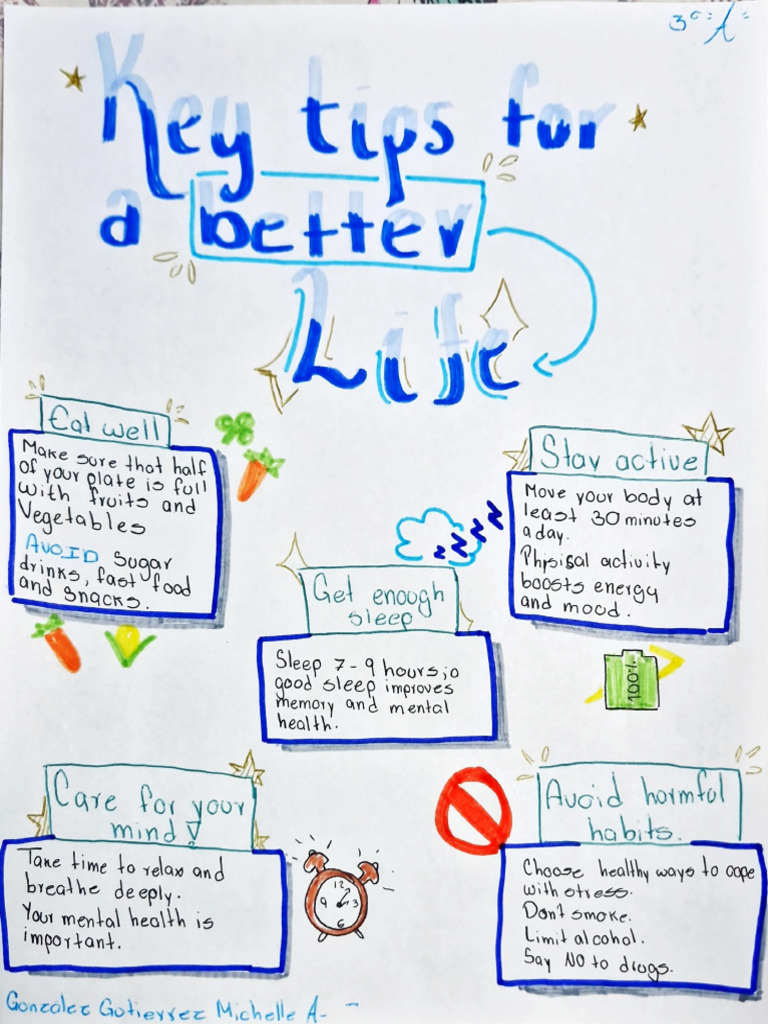 3° "A"
Key tips for
a better
Life
Eat well
Make sure that half
of your plate is full
with fruits and
Vegetables
AVOID sugar
drinks, fast food
and snacks.
Stay active
Move your body at
least 30 minutes
a day.
Physical activity
boosts energy
and mood.
Get enough
sleep
zzzz
Sleep 7-9 hours;a
good sleep improves
memory and mental
health.
100%
Care for your
mind!
Take time to relax and
breathe deeply.
Your mental health is
important.
12
9 3
6
Avoid harmful
habits.
Choose healthy ways to cope
with stress.
Don't smoke.
Limit alcohol.
Say NO to drugs.
Gonzalez Gutierrez Michelle A-